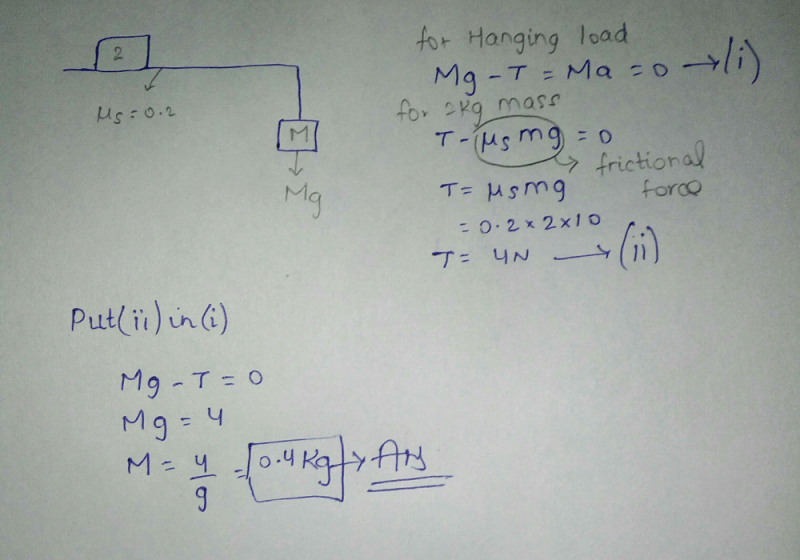 2
μs = 0.2
M
Mg
for Hanging load
Mg - T = Ma = 0 → (i)
for 2Kg mass
T - μs mg = 0
→ frictional force
T = μs mg
= 0.2 × 2 × 10
T = 4N → (ii)
Put (ii) in (i)
Mg - T = 0
Mg = 4
M = 4/g = 0.4 Kg → Ans